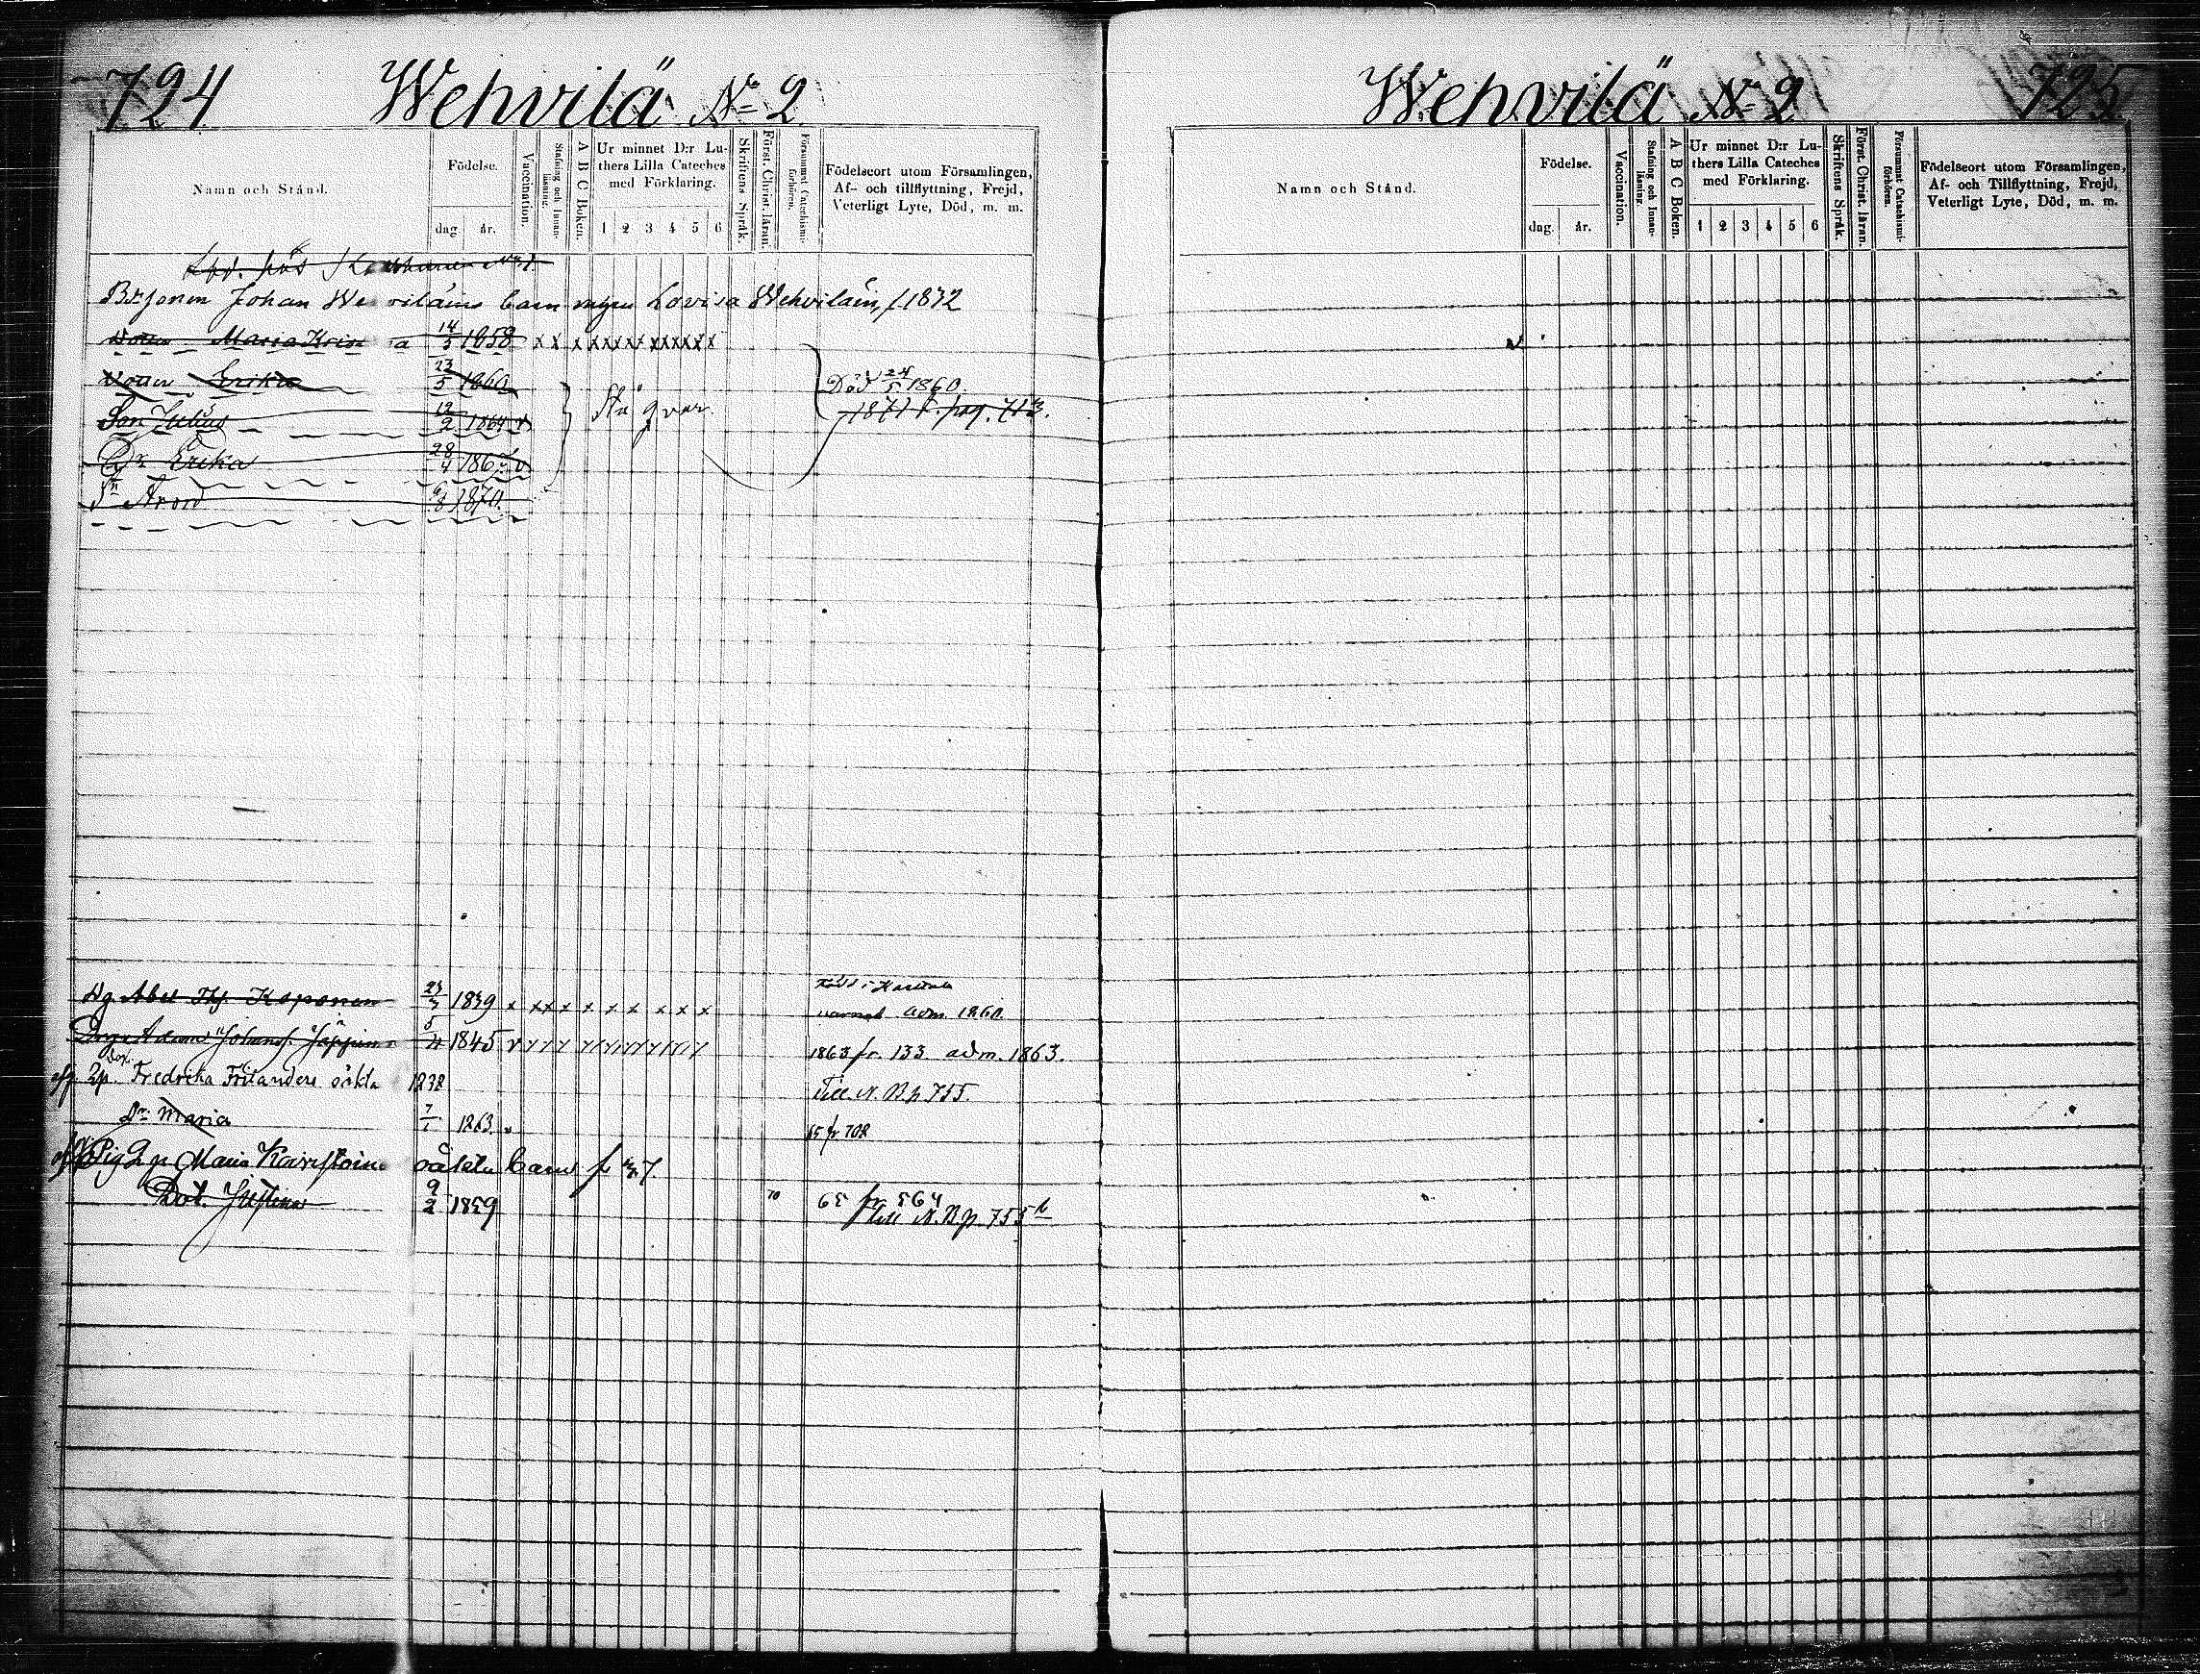 724 Wehvilä No 2
Namn och Stånd.
Födelse.
dag. år.
Vaccination.
Stafning och Innan-läsning.
A B C Boken.
Ur minnet D:r Lu-
thers Lilla Cateches
med Förklaring.
1 2 3 4 5 6
Skriftens Språk.
Först. Christ. läran.
Försummat Catechismi-förhören.
Födelseort utom Församlingen,
Af- och tillflyttning, Frejd,
Veterligt Lyte, Död, m. m.
Johan barn Lovisa Wehviläin, f. 1832
Maria 14/5 1858 x x x x x x x x x x x x
Erika 23/5 1860 Död 24/5 1860
Son Julius 12/2 1864 Stå qvar 1871 t. pag. 713.
Dr Erika 28/4 1867
Sn Arond 1870.
Dg. Abel Koponen 23/7 1839 x x x x x x x x x x adm. 1860.
Adam Johansf. Jäppinen 5/4 1845 1863 fr. 133 adm. 1863.
Fredrika Frilanders oäkta 1838 Till N. B. p 755.
Dr Maria 7/1 1863 65 fr 702
Pig Maria oäkta barn fr
Dot. Justina 9/2 1859 70 65 fr 564
till N. B. p. 755
Wehvilä No 2 725
Namn och Stånd.
Födelse.
dag. år.
Vaccination.
Stafning och Innan-läsning.
A B C Boken.
Ur minnet D:r Lu-
thers Lilla Cateches
med Förklaring.
1 2 3 4 5 6
Skriftens Språk.
Först. Christ. läran.
Försummat Catechismi-förhören.
Födelseort utom Församlingen,
Af- och Tillflyttning, Frejd,
Veterligt Lyte, Död, m. m.